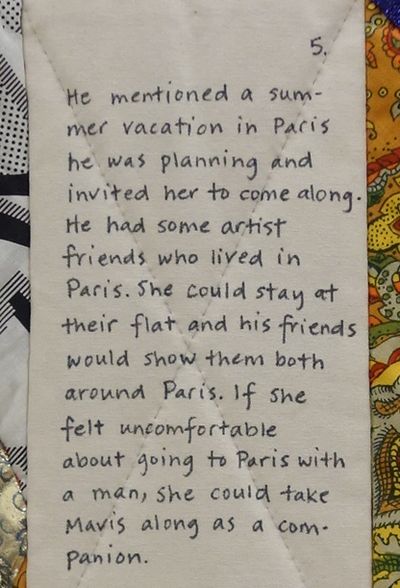 5.
He mentioned a sum-
mer vacation in Paris
he was planning and
invited her to come along.
He had some artist
friends who lived in
Paris. She could stay at
their flat and his friends
would show them both
around Paris. If she
felt uncomfortable
about going to Paris with
a man, she could take
Mavis along as a com-
panion.